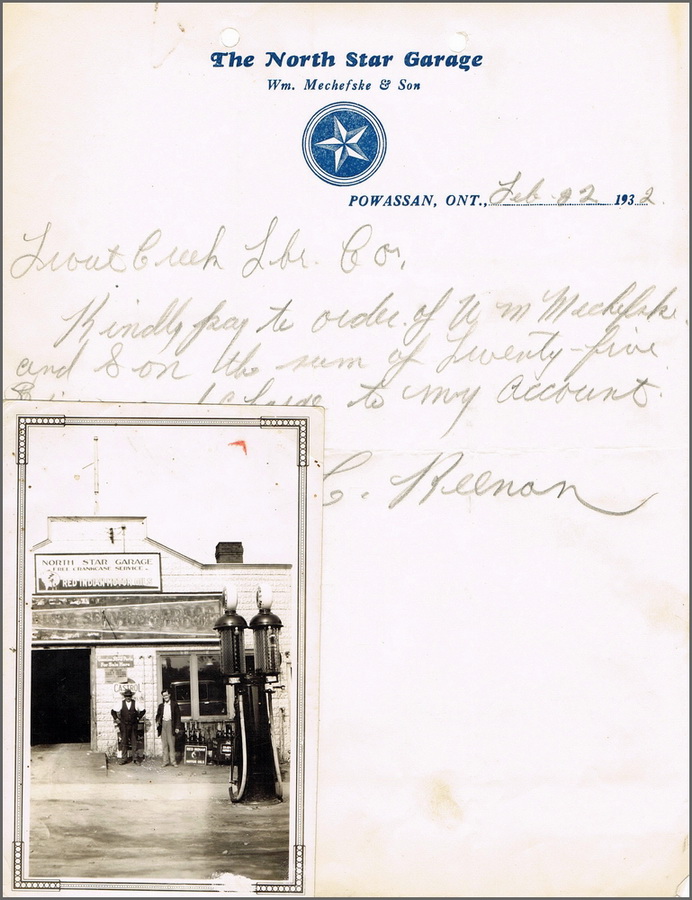 The North Star Garage
Wm. Mechefske & Son
POWASSAN, ONT., Feb 22 1932
Trout Creek Lbr. Co.
Kindly pay to order of Wm Mechefske
and Son the sum of Twenty-five
to my account
C. Keenan
NORTH STAR GARAGE
FREE CRANKCASE SERVICE
RED INDIAN
For Sale Here
CASTROL